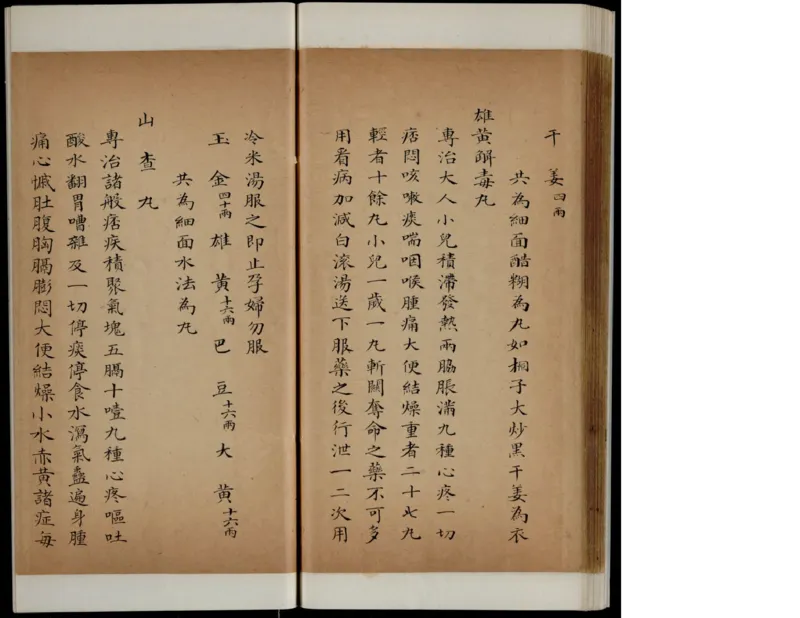 干姜四兩
共為細面醋糊為丸如桐子大炒黑干姜為衣
雄黃解毒丸
專治大人小兒積滯發熱兩脇脹滿九種心疼一切
痞悶咳嗽痰喘咽喉腫痛大便結燥重者二十七丸
輕者十餘丸小兒一歲一丸斬関奪命之藥不可多
用看病加減白滚湯送下服藥之後行泄一二次用
冷米湯服之即止孕婦勿服
玉金四十兩雄黃十六兩巴豆十六兩大黃十六兩
共為細面水法為丸
山查丸
專治諸般痞疾積聚氣塊五膈十噎九種心疼嘔吐
酸水翻胃嘈雜及一切停痰停食水瀉氣蠱遍身腫
痛心慽肚腹胸膈膨悶大便結燥小水赤黃諸症每